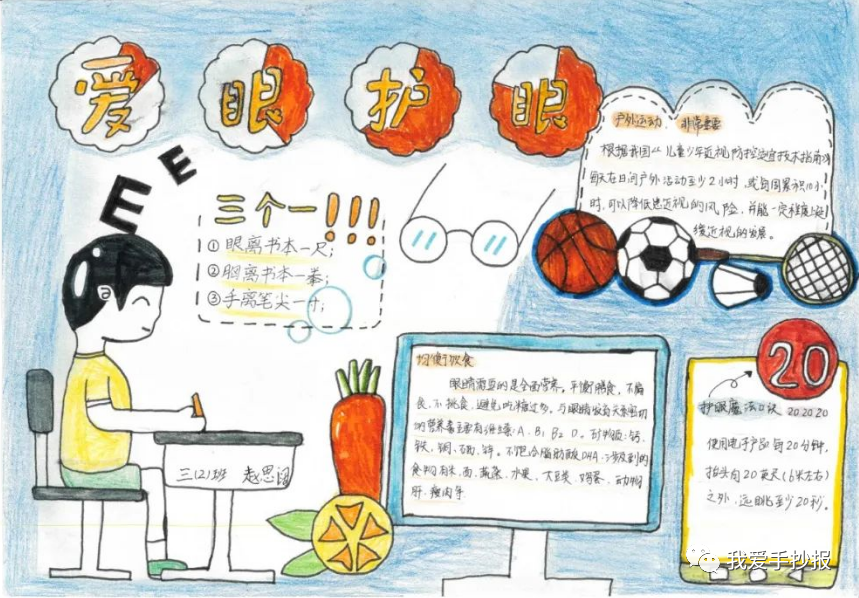 爱眼护眼
E
E
三个一!!!
①眼离书本一尺;
②胸离书本一拳;
③手离笔尖一寸;
户外运动 非常重要
根据我国《儿童少年近视防控适宜技术指南》
每天在日间户外活动至少2小时,或每周累积10小
时,可以降低患近视的风险,并能一定程度延
缓近视的发展。
均衡饮食
眼睛需要的是全面营养。平衡膳食,不偏
食、不挑食,避免吃糖过多。与眼睛发育关系密切
的营养素主要有维生素:A、B₁ B₂ D。矿物质:钙、
铁、铜、硒、锌。不饱和脂肪酸DHA
食物有米、面、蔬菜、水果、大豆类、奶
肝、瘦肉等
20
护眼魔法口诀 20 20 20
使用电子产品每20分钟,
抬头向20英尺(6米左右)
之外,远眺至少20秒。
三(2)班 赵思
我爱手抄报